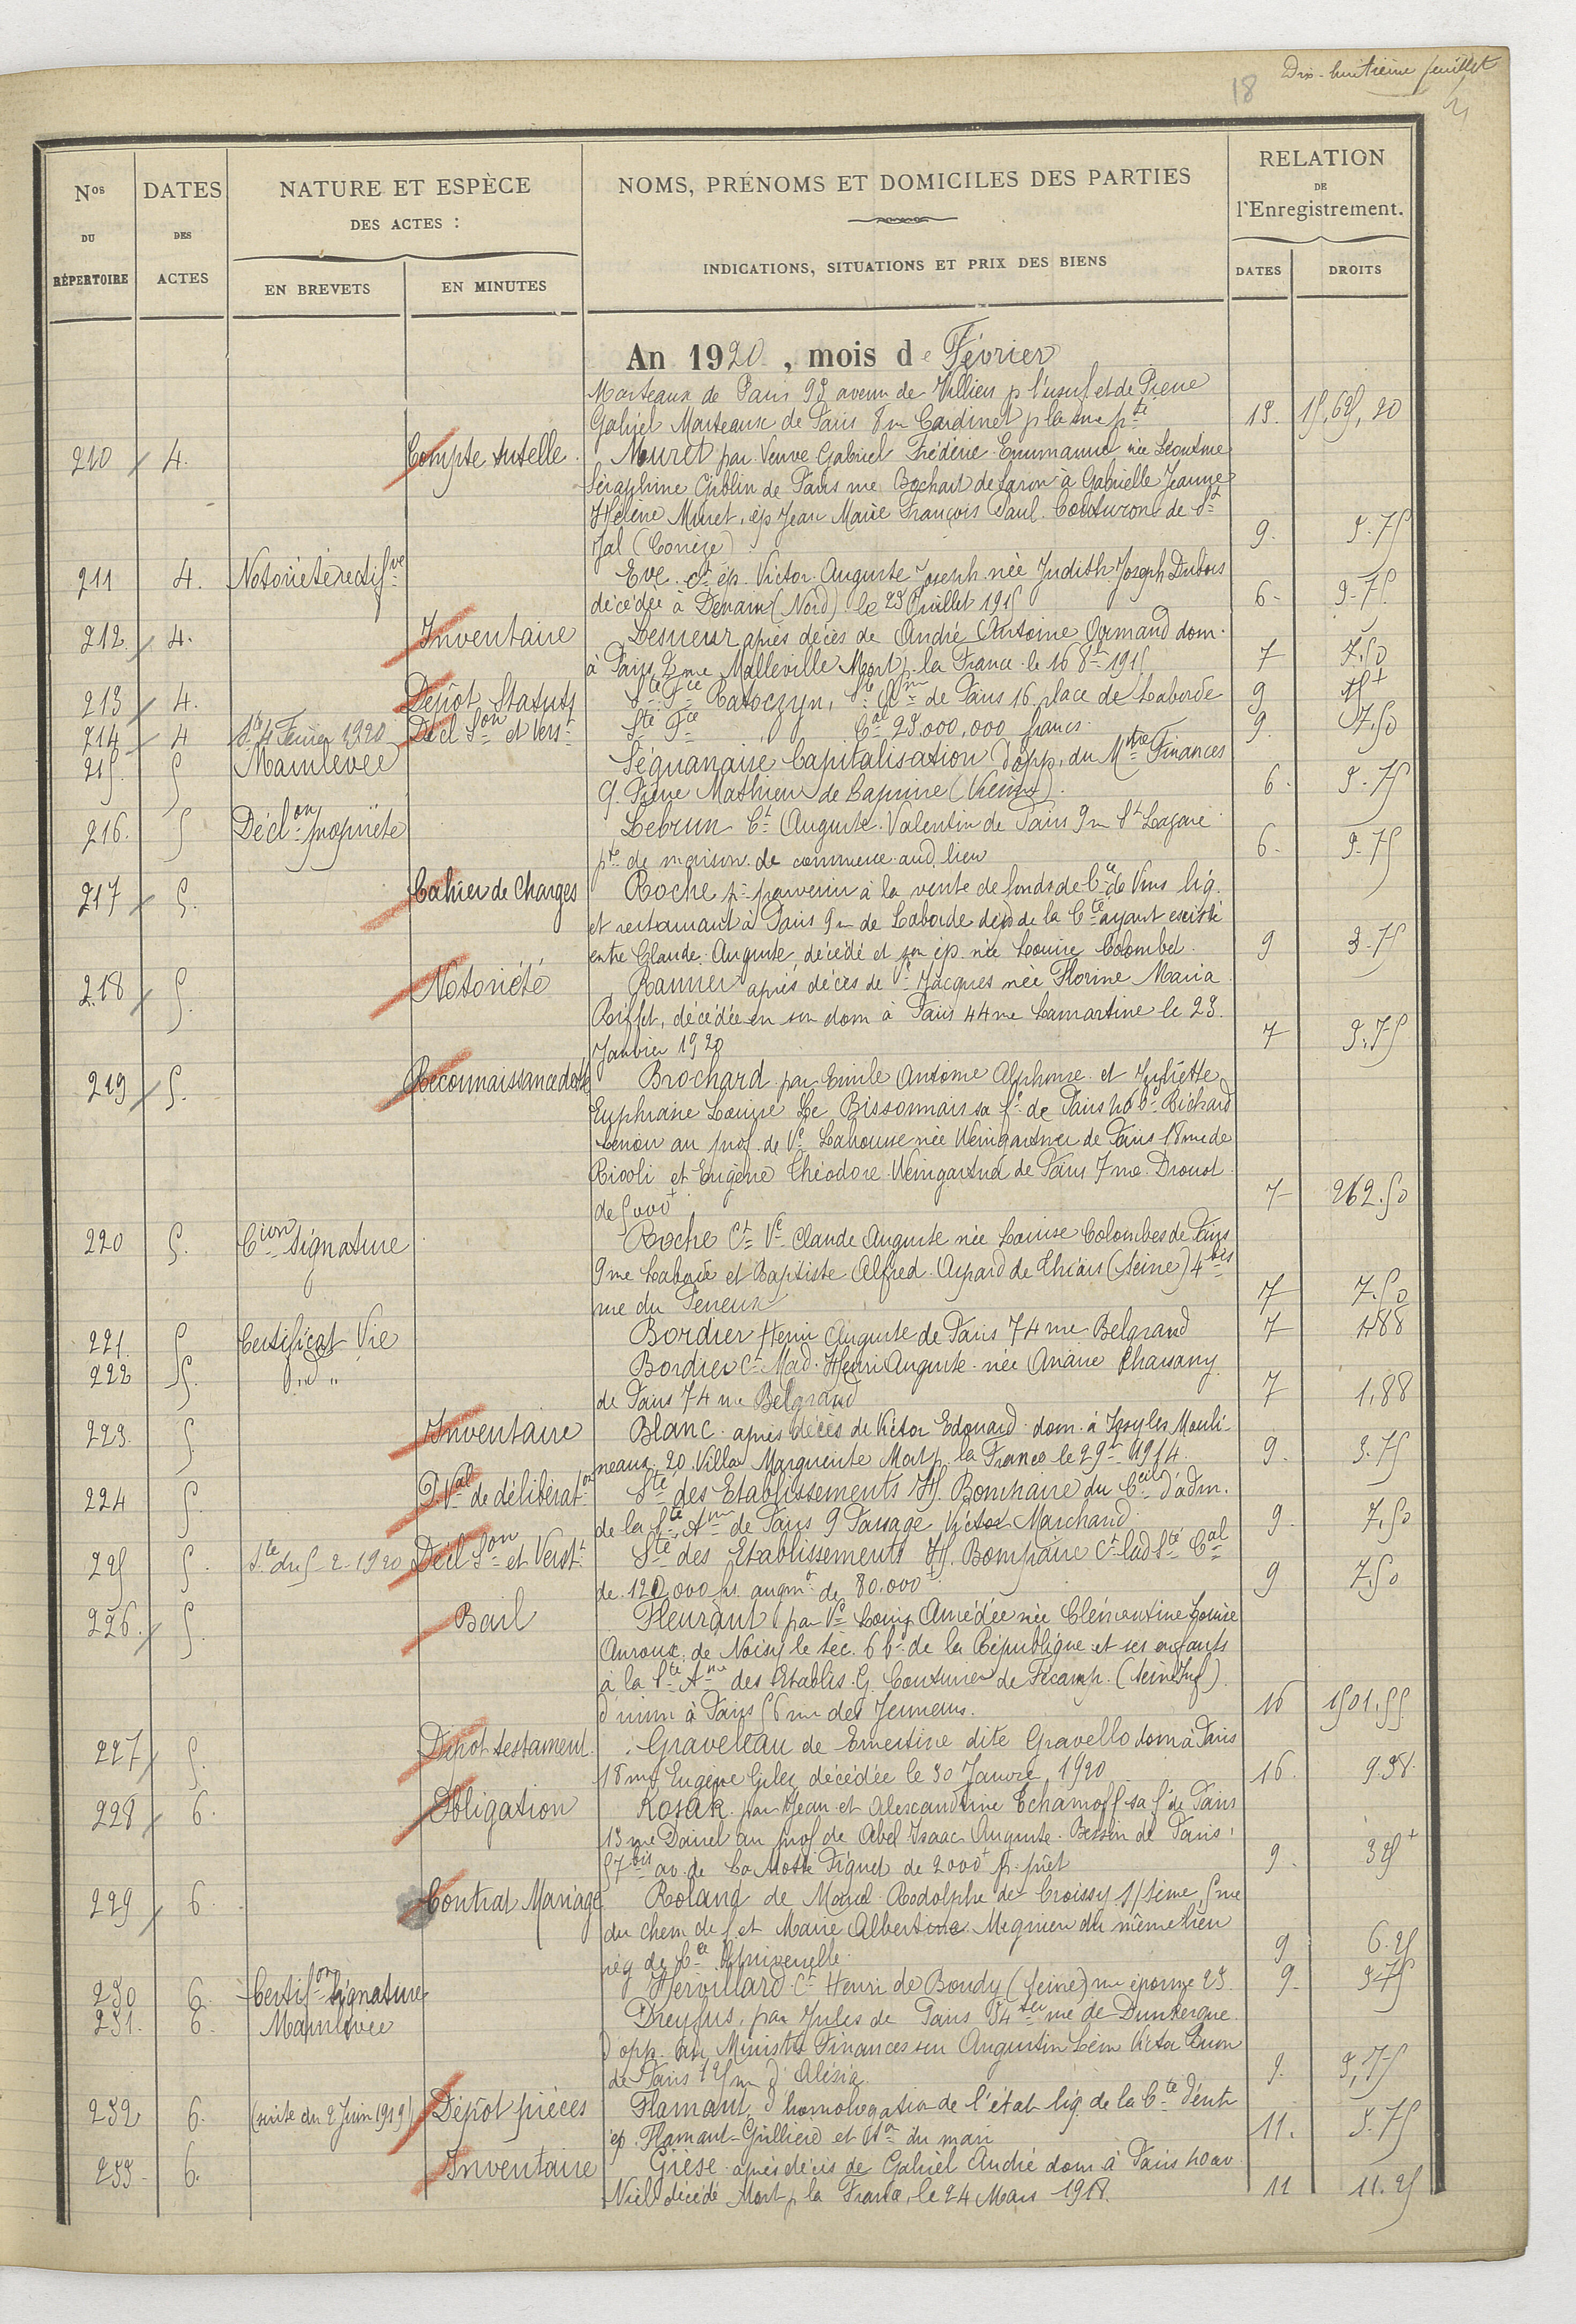 Dix-huitième feuillet
18
Nos DU RÉPERTOIRE
DATES DES ACTES
NATURE ET ESPÈCE
DES ACTES :
EN BREVETS
EN MINUTES
NOMS, PRÉNOMS ET DOMICILES DES PARTIES
INDICATIONS, SITUATIONS ET PRIX DES BIENS
RELATION
DE
l'Enregistrement.
DATES
DROITS
An 1920, mois de Février
Marteaux de Paris 93 avenue de Villiers p l'usuf et de Pierre
Gabriel Marteaux de Paris 8 rue Cardinet p la nue pté 13. 15,625,20
210 4. Compte tutelle. Muret par Veuve Gabriel Frédéric Emmanuel née Léontine
Séraphine Giblin de Paris rue Bochart de Saron à Gabrielle Jeanne
Hélène Muret, ép Jean Marie François Paul Couturon de St
Jal (Corrèze) 9. 3.75
211 4. Notoriété rectifve Eve ct ép. Victor Auguste Joseph née Judith Joseph Dubois
décédée à Denain (Nord) le 23 Juillet 1915 6. 3.75
212 4. Inventaire Lesueur après décès de André Antoine Armand dom.
à Paris 2 rue Malleville Mort p. la France le 16 8bre 1915 7 7.50
213 4. Dépôt Statuts Sté Fce Ratoczyn, Sté Ame de Paris 16 place de Laborde 9
214 4 Ste 4 Février 1920 Décl Son et Verst Sté Fce Cal 23.000,000 francs. 9. 7.50
215. 5 Mainlevée Séquanaise Capitalisation d'opp. du Mtre Finances
g. Pierre Mathieu de (Vienne). 6. 3.75
216. 5 Déclon propriété Lebrun Ct Auguste Valentin de Paris 9 rue St Lazare
pte de maison de commerce aud. lieu 6. 3.75
217 5. Cahier de Charges Roche pr parvenir à la vente de fonds de Cce de Vins liq.
et restaurant à Paris 9 rue de Laborde dépd de la Cté ayant existé
entre Claude Auguste décédé et son ép. née Louise Colombet. 9 3.75
218 5. Notoriété après décès de Ve Jacques née Florine Maria
Riffet, décédée en son dom à Paris 44 rue Lamartine le 23.
Janvier 1920 7 3.75
219 5. Reconnaissance dette Brochard par Emile Antoine Alphonse et Juliette
Euphrasie Louise Le Bissonnais sa fe de Paris 40 bd Richard
Lenoir au prof. de Ve Lahousse née Weingartner de Paris 18 rue de
Rivoli et Eugène Théodore Weingartner de Paris 7 rue Drouot
de 5000 7 262.50
220 5. Cion signature Roche Ct Ve Claude Auguste née Louise Colombet de Paris
9 rue Laborde et Baptiste Alfred Aspard de Thiais (Seine) 4 bis
rue du 7 7.50
221. 5 Certificat Vie Bordier Henri Auguste de Paris 74 rue Belgrand 7 1.88
222 5. d° Bordier Ct Mad. Henri Auguste née Ariane Chassany
de Paris 74 rue Belgrand 7 1,88
223. 5 Inventaire Blanc après décès de Victor Edouard dom. à Issy les Mouli-
neaux 20 Villa Marguerite Mort p. la France le 29 1914. 9. 3.75
224 5. P. Val de délibération Sté des Etablissements H. Bompaire du Ceil d'adm.
de la Sté Ame de Paris 9 Passage Victor Marchand 9. 7.50
225 5. Ste du 5-2-1920 Décl Son et Verst Sté des Etablissements H. Bompaire Ct lad Sté Cal
de 120,000 frs augmt de 80.000 9 7.50
226 5. Bail Fleurant par Ve Louis Amédée née Clémentine Louise
Auroux de Noisy le Sec. 6 bd de la République et ses enfants
à la Sté Ame des Etablis. G. Couturier de Fécamp. (Seine Inf)
d'imm à Paris 56 rue des Jeuneurs. 16 1501.55
227 5. Dépôt testament Graveleau de Ernestine dite Gravello dom à Paris
18 rue Eugène Gilez décédée le 30 Janvier 1920 16. 9.38.
228 6. Obligation Kozak par Jean et Alexandrine Tchamoff sa fe de Paris
13 rue au prof de Abel Isaac Auguste de Paris,
57 bis av. de La Motte Piquet de 2000 pr prêt 9. 325
229 6. Contrat Mariage Roland de Marcel Rodolphe de Croissy S/Seine, 5 rue
du chem de f et Marie Albertine Mignien du même lieu
rég de Cté Universelle. 9 6.25
230 6. Certifon Signature Hervillard Ct Henri de Bondy (Seine) rue 23. 9. 3.75
231. 6. Mainlevée Dreyfus, par Jules de Paris 54 ter rue de Dunkerque
d'opp. au Ministre Finances sur Augustin Léon Victor
de Paris 125 rue d'Alésia. 9. 3,75
232 6. (suite du 2 Juin 1919) Dépôt pièces Flamant d'homologation de l'état liq. de la Cté d'entre
ép. Flamant-Grillière et son du mari 11. 3.75
233. 6. Inventaire Grèze après décès de Gabriel André dom à Paris 40 av
Niel décédé Mort p. la France, le 24 Mars 1918. 11 11.25